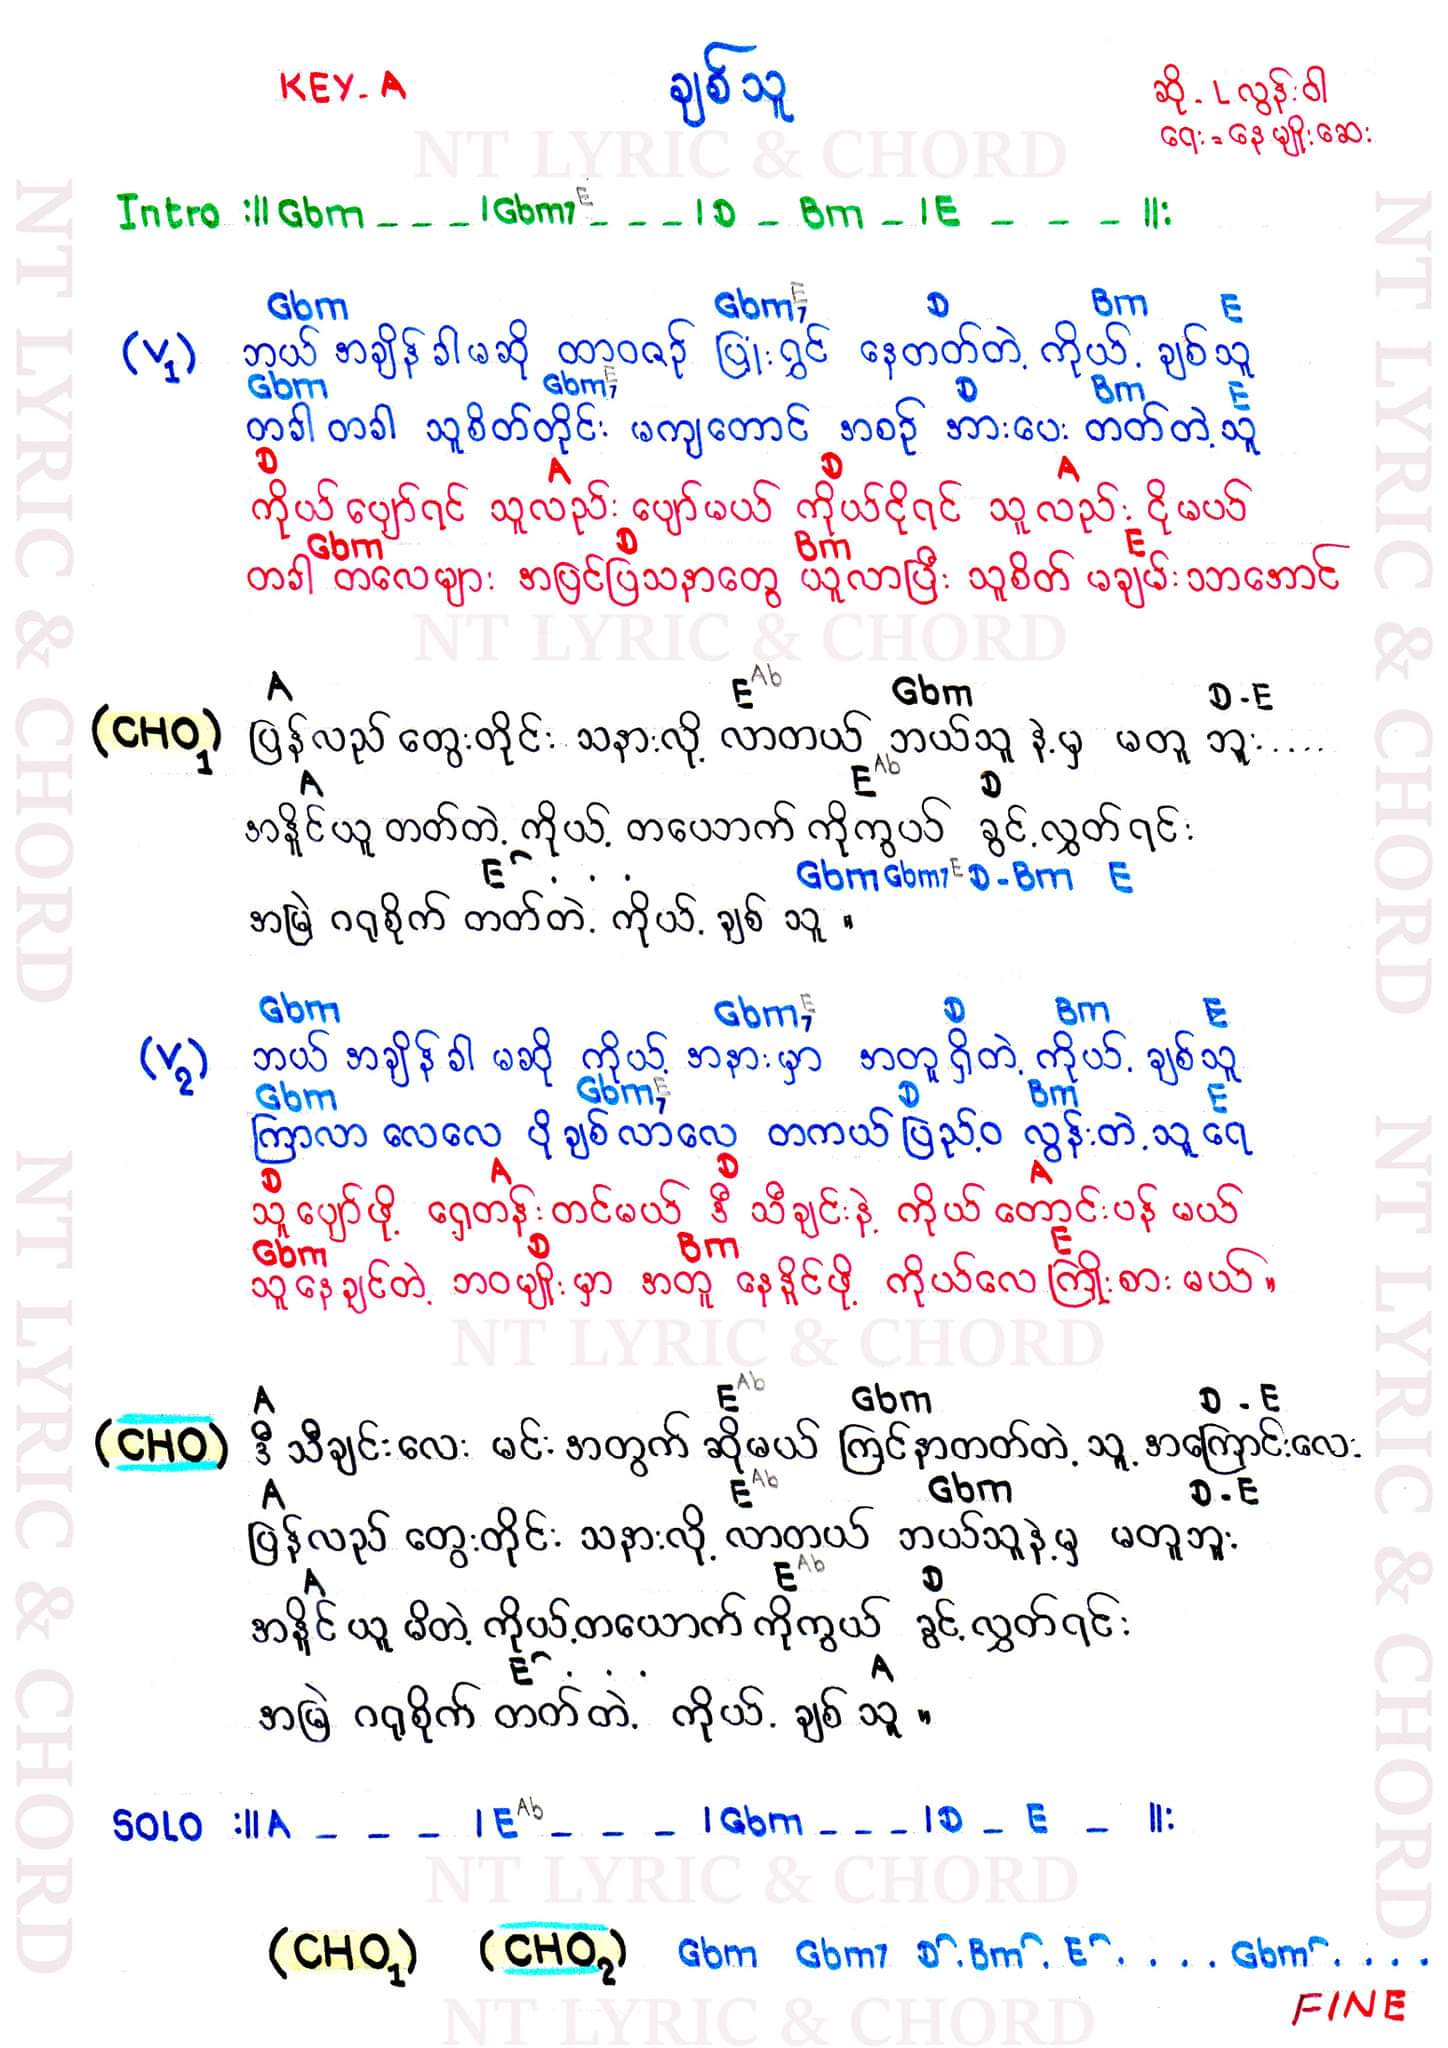 KEY-A
ချစ်သူ
ဆို - L လွန်းဝါ
ရေး = နေမျိုးဆေး
NT LYRIC & CHORD
Intro :|| Gbm _ _ _ | Gbm7 E _ _ _ | D _ Bm _ | E _ _ _ ||:
Gbm Gbm7 E D Bm E
(V1) ဘယ် အချိန်ခါမဆို ထာဝစဉ် ပြုံးရွှင် နေတတ်တဲ့ ကိုယ့် ချစ်သူ
Gbm Gbm7 E D Bm E
တခါ တခါ သူစိတ်တိုင်း မကျတောင် အစဉ် အားပေး တတ်တဲ့သူ
D A D A
ကိုယ်ပျော်ရင် သူလည်း ပျော်မယ် ကိုယ်ငိုရင် သူလည်း ငိုမယ်
Gbm D Bm E
တခါ တလေများ အပြင်ပြဿနာတွေ ယူလာပြီး သူစိတ် မချမ်းသာအောင်
NT LYRIC & CHORD
A E Ab Gbm D-E
(CHO1) ပြန်လည် တွေးတိုင်း သနားလို့ လာတယ် ဘယ်သူ နဲ့မှ မတူ ဘူး....
A E Ab D
အနိူင်ယူ တတ်တဲ့ ကိုယ့် တယောက်ကိုကွယ် ခွင့်လွှတ်ရင်း
E . . . Gbm Gbm7 E D-Bm E
အမြဲ ဂရုစိုက် တတ်တဲ့ ကိုယ့် ချစ် သူ ။
Gbm Gbm7 E D Bm E
(V2) ဘယ် အချိန်ခါ မဆို ကိုယ့် အနားမှာ အတူရှိတဲ့ ကိုယ့် ချစ်သူ
Gbm Gbm7 E D Bm E
ကြာလာ လေလေ ပိုချစ်လာလေ တကယ် ပြည့်ဝ လွန်းတဲ့သူရေ
D A D A
သူပျော်ဖို့ ရှေ့တန်းတင်မယ် ဒီ သီချင်းနဲ့ ကိုယ်တောင်းပန် မယ်
Gbm D Bm E
သူနေချင်တဲ့ ဘဝမျိုးမှာ အတူ နေနိူင်ဖို့ ကိုယ်လေကြိုးစား မယ် ။
NT LYRIC & CHORD
A E Ab Gbm D - E
(CHO) ဒီ သီချင်းလေး မင်းအတွက် ဆိုမယ် ကြင်နာတတ်တဲ့ သူ့ အကြောင်းလေး
A E Ab Gbm D-E
ပြန်လည် တွေးတိုင်း သနားလို့ လာတယ် ဘယ်သူနဲ့မှ မတူဘူး
A E Ab D
အနိူင်ယူ မိတဲ့ ကိုယ့်တယောက်ကိုကွယ် ခွင့်လွှတ်ရင်း
E . . . A
အမြဲ ဂရုစိုက် တတ်တဲ့ ကိုယ့် ချစ် သူ ။
SOLO :|| A _ _ _ | E Ab _ _ _ | Gbm _ _ _ | D _ E _ ||:
NT LYRIC & CHORD
(CHO1) (CHO2) Gbm Gbm7 D . Bm . E . . . . Gbm . . . .
FINE
NT LYRIC & CHORD
NT LYRIC & CHORD
NT LYRIC & CHORD
NT LYRIC & CHORD
NT LYRIC & CHORD